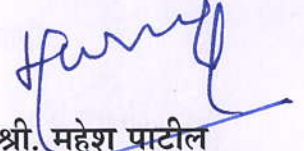 श्री. महेश पाटील